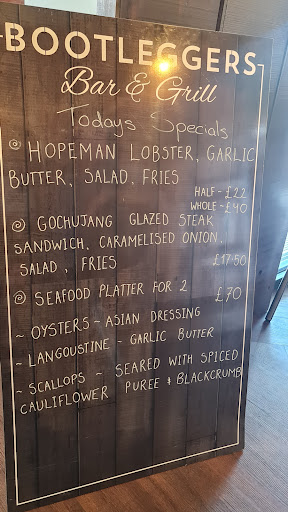 BOOTLEGGERS
Bar & Grill
Todays Specials
@ HOPEMAN LOBSTER, GARLIC
BUTTER, SALAD, FRIES
HALF - £22
WHOLE - £40
@ GOCHUJANG GLAZED STEAK
SANDWICH, CARAMELISED ONION,
SALAD, FRIES £17.50
@ SEAFOOD PLATTER FOR 2 £70
~ OYSTERS - ASIAN DRESSING
~ LANGOUSTINE - GARLIC BUTTER
~ SCALLOPS ~ SEARED WITH SPICED
CAULIFLOWER PUREE & BLACKCRUMB